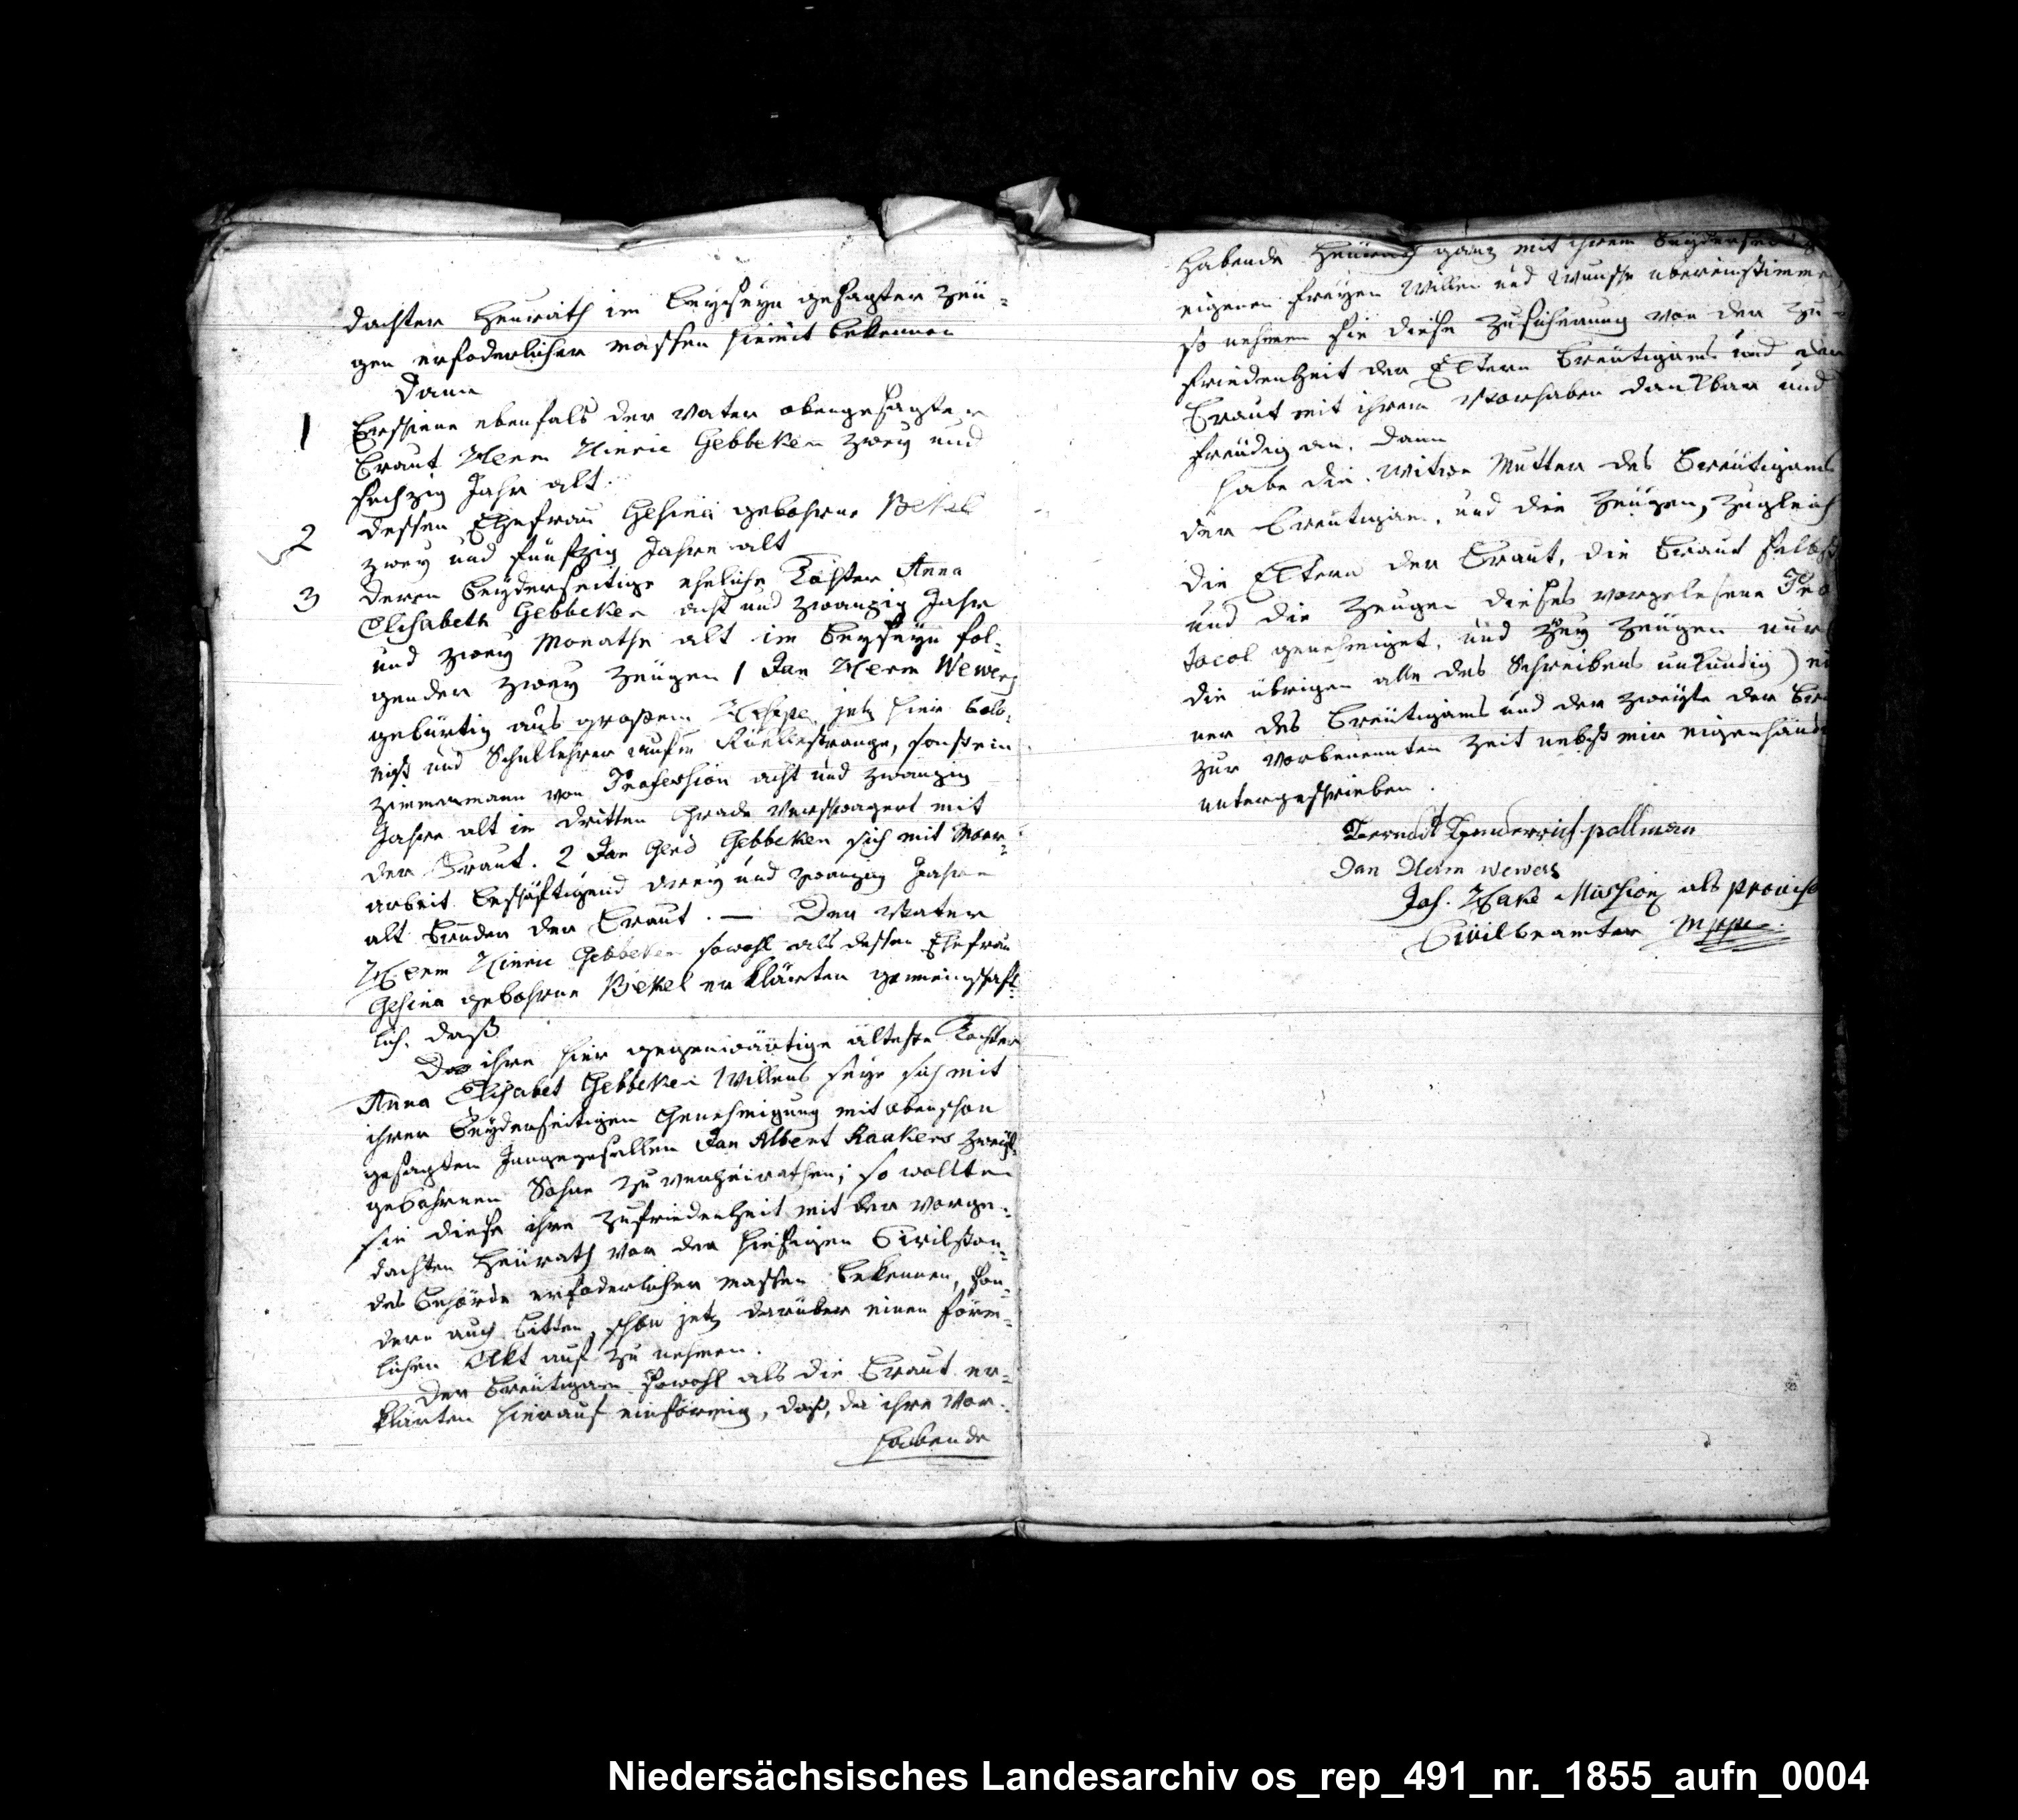 dachter Heurath im Beyseyn gesagter Zeu-
gen erfoderlicher massen hiemit bekennen
Dann
1 Erschiene ebenfals der Vater obengesagter
Braut Herm Hinric Gebbeken zwey und
sechzig Jahr alt.
2 dessen Ehefrau Gesina gebohrne Bekel
zwey und fünfzig Jahre alt
3 deren beyderseitige eheliche Tochter Anna
Elisabeth Gebbeken acht und zwanzig Jahr
und zwey Monathe alt im Beyseyn fol-
gender zwey Zeugen 1 Jan Herm Wewers
gebürtig aus großem Hesepe, jetz hier Colo-
nist und Schullehrer aufm Rüellestrange, sonst ein
Zimmermann von Profession acht und zwanzig
Jahre alt im dritten Grade verschwagert mit
der Braut. 2 Jan Gerd Gebbeken sich mit Moor-
arbeit beschäftigend drey und zwanzig Jahre
alt Bruder der Braut. — Der Vater
Herm Hinric Gebbeken sowohl als dessen Ehefrau
Gesina gebohrne Bekel erklärten gemeinschaft-
lich, daß
Da ihre hier gegenwärtige älteste Tochter
Anna Elisabet Gebbeken Willens seye sich mit
ihrer beyderseitigen Genehmigung mit oben schon
gesagten Junggesellen Jan Albert Raakers zweyt-
gebohrnen Sohne zu verheirathen; so wollten
sie diese ihre Zufriedenheit mit der vorge-
dachten Heurath vor der hiesigen Civilstan-
des Behörde erfoderlicher massen bekennen, son-
dern auch bitten, schon jetz darüber einen förm-
lichen Akt auf zu nehmen.
Der Breutigam sowohl als die Braut er-
klärten hierauf einförmig, daß, da ihre Vor-
habende
habende Heurath ganz mit ihrem beyderseitig
eigenen freyen Willen und Wunsche übereinstimme,
so nehmen sie diese Zusicherung von der Zu-
friedenheit der Eltern Breutigams und der
Braut mit ihrem Vorhaben dankbar und
freudig an. Dann
habe die Witwe Mutter des Breutigams
der Breutigam, und die Zeugen, zugleich
die Eltern der Braut, die Braut selbst
und die Zeugen dieses vorgelesene Pro
tocol genehmiget, und zwey Zeugen nur (
die übrigen alle des Schreibens unkundig) ei
ner des Breutigams und der zweyte der Bra
zur vorbenennten Zeit nebst mir eigenhänd
untergeschrieben.
Berndt Henderrich pollman
Jan Herm wewers
Joh. Hake Mission als provis
Civilbeamter Mppe.
Niedersächsisches Landesarchiv os_rep_491_nr._1855_aufn_0004